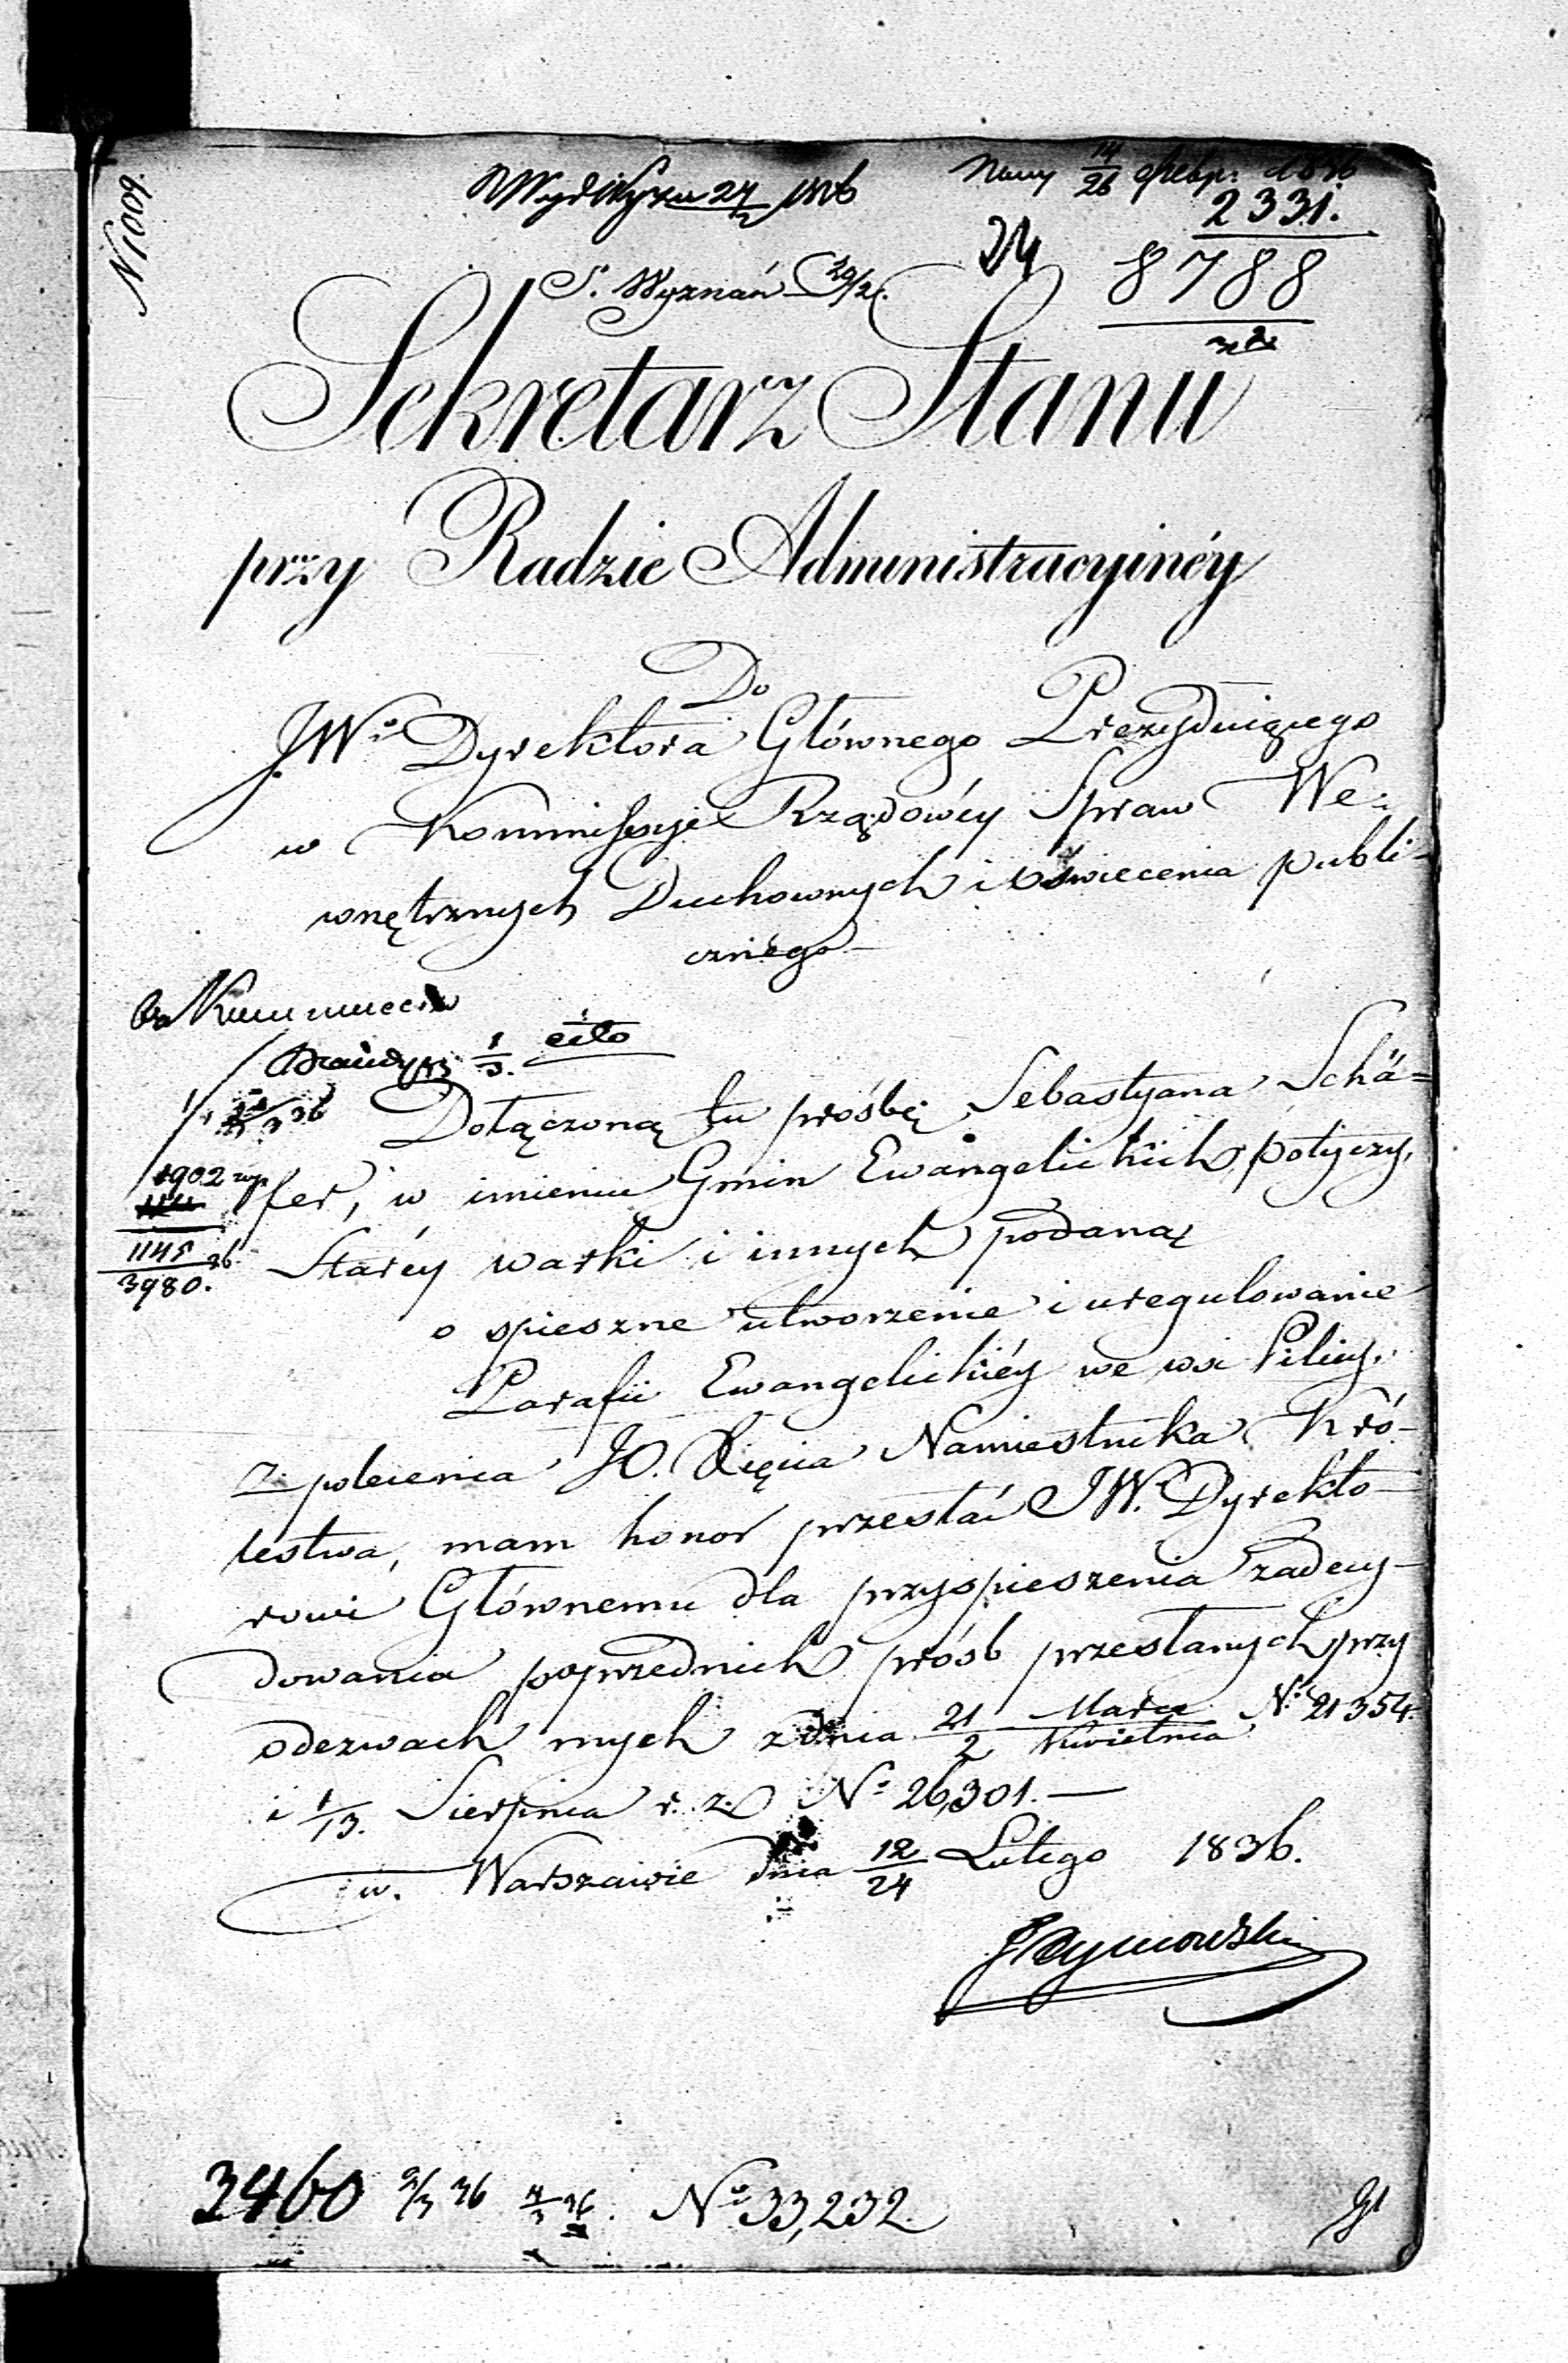 N 1009.
24/2 1836
14/26 1836
2331.
S. Wyznań
24
8788
Sekretarz Stanu
przy Radzie Administracyinéy
Do
JWo Dyrektora Głównego Prezyduiącego
w Kommissyi Rządowéy Spraw We-
wnętrznych Duchownych i oświecenia publi-
cznego
cito
1/3.
Dołączoną tu prośbę Sebastyana Schä=
fer, w imieniu Gmin Ewangelickich, Potyczy,
Staréy warki i innych podaną
o spieszne utworzenie i uregulowanie
Parafii Ewangelickiéy we wsi Pilicy,
z polecenia JO. Xięcia Namiestnika Kró-
lestwa, mam honor przesłać JW. Dyrekto-
rowi Głównemu dla przyspieszenia zadecy-
dowania poprzednich próśb przesłanych przy
odezwach mych z dnia 21/2 Marca/Kwietnia No 21354.
i 1/13. Sierpnia r. z. No 26,301. —
w. Warszawie dnia 12/24 Lutego 1836.
1902
1145
3980.
3460 9/3 36
No 33,232